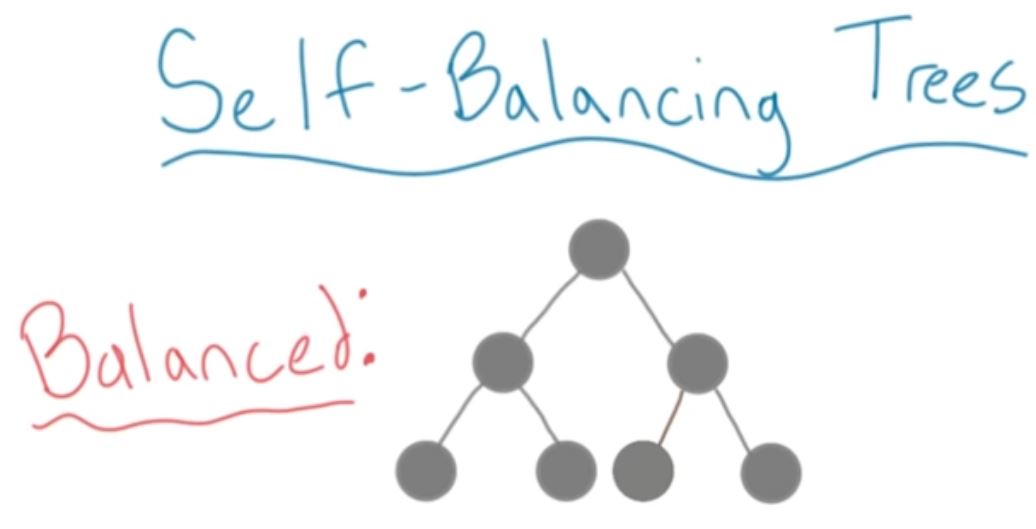 Self-Balancing Trees
Balanced: